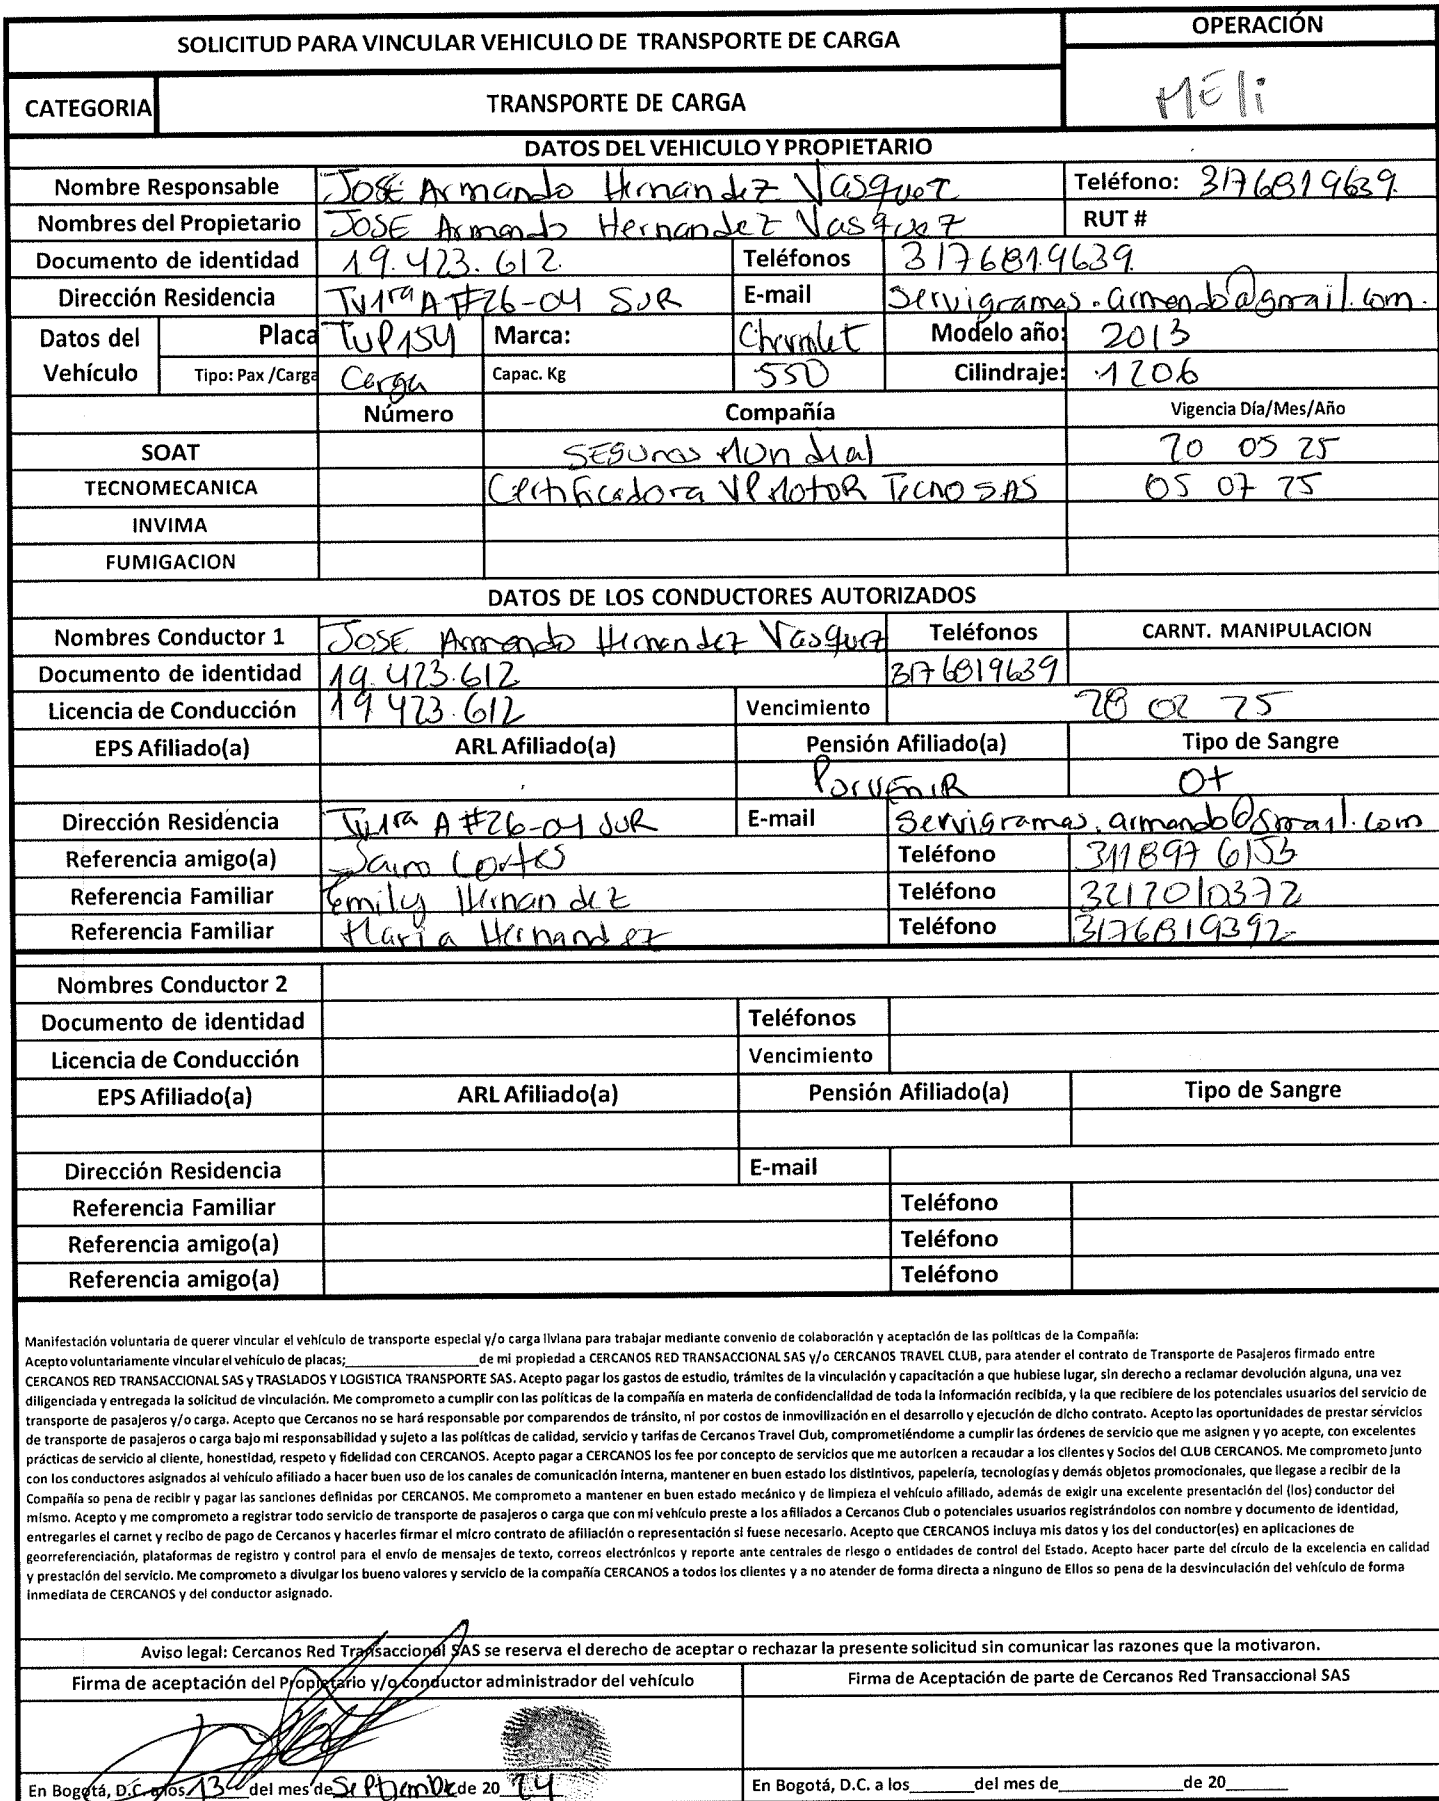 SOLICITUD PARA VINCULAR VEHICULO DE TRANSPORTE DE CARGA
OPERACIÓN
CATEGORIA TRANSPORTE DE CARGA
MEli
DATOS DEL VEHICULO Y PROPIETARIO
Nombre Responsable JOSE Armando Hernandez Vasquez Teléfono: 3176819639
Nombres del Propietario JOSE Armando Hernandez Vasquez RUT #
Documento de identidad 19.423.612 Teléfonos 3176819639
Dirección Residencia TV1ra A #26-04 SUR E-mail servigramas.armando@gmail.com.
Datos del Vehículo Placa TUP154 Marca: Chevrolet Modelo año: 2013
Tipo: Pax /Carga Carga Capac. Kg 550 Cilindraje: 1206
Número Compañía Vigencia Día/Mes/Año
SOAT SEGUROS MUNdial 20 05 25
TECNOMECANICA Certificadora VP MOTOR TECNO SAS 05 07 25
INVIMA
FUMIGACION
DATOS DE LOS CONDUCTORES AUTORIZADOS
Nombres Conductor 1 JOSE Armando Hernandez Vasquez Teléfonos CARNT. MANIPULACION
Documento de identidad 19.423.612 3176819639
Licencia de Conducción 19423.612 Vencimiento 28 02 25
EPS Afiliado(a) ARL Afiliado(a) Pensión Afiliado(a) Tipo de Sangre
PorvENIR O+
Dirección Residencia TV1ra A #26-04 SUR E-mail servigramas.armando@gmail.com
Referencia amigo(a) Jairo Cortes Teléfono 311897 6153
Referencia Familiar Emily Hernandez Teléfono 3217010372
Referencia Familiar Maria Hernandez Teléfono 3176819392
Nombres Conductor 2
Documento de identidad Teléfonos
Licencia de Conducción Vencimiento
EPS Afiliado(a) ARL Afiliado(a) Pensión Afiliado(a) Tipo de Sangre
Dirección Residencia E-mail
Referencia Familiar Teléfono
Referencia amigo(a) Teléfono
Referencia amigo(a) Teléfono
Manifestación voluntaria de querer vincular el vehículo de transporte especial y/o carga liviana para trabajar mediante convenio de colaboración y aceptación de las políticas de la Compañía:
Acepto voluntariamente vincular el vehículo de placas;____________________de mi propiedad a CERCANOS RED TRANSACCIONAL SAS y/o CERCANOS TRAVEL CLUB, para atender el contrato de Transporte de Pasajeros firmado entre
CERCANOS RED TRANSACCIONAL SAS y TRASLADOS Y LOGISTICA TRANSPORTE SAS. Acepto pagar los gastos de estudio, trámites de la vinculación y capacitación a que hubiese lugar, sin derecho a reclamar devolución alguna, una vez
diligenciada y entregada la solicitud de vinculación. Me comprometo a cumplir con las políticas de la compañía en materia de confidencialidad de toda la información recibida, y la que recibiere de los potenciales usuarios del servicio de
transporte de pasajeros y/o carga. Acepto que Cercanos no se hará responsable por comparendos de tránsito, ni por costos de inmovilización en el desarrollo y ejecución de dicho contrato. Acepto las oportunidades de prestar servicios
de transporte de pasajeros o carga bajo mi responsabilidad y sujeto a las políticas de calidad, servicio y tarifas de Cercanos Travel Club, comprometiéndome a cumplir las órdenes de servicio que me asignen y yo acepte, con excelentes
prácticas de servicio al cliente, honestidad, respeto y fidelidad con CERCANOS. Acepto pagar a CERCANOS los fee por concepto de servicios que me autoricen a recaudar a los clientes y Socios del CLUB CERCANOS. Me comprometo junto
con los conductores asignados al vehículo afiliado a hacer buen uso de los canales de comunicación interna, mantener en buen estado los distintivos, papelería, tecnologías y demás objetos promocionales, que llegase a recibir de la
Compañía so pena de recibir y pagar las sanciones definidas por CERCANOS. Me comprometo a mantener en buen estado mecánico y de limpieza el vehículo afiliado, además de exigir una excelente presentación del (los) conductor del
mismo. Acepto y me comprometo a registrar todo servicio de transporte de pasajeros o carga que con mi vehículo preste a los afiliados a Cercanos Club o potenciales usuarios registrándolos con nombre y documento de identidad,
entregarles el carnet y recibo de pago de Cercanos y hacerles firmar el micro contrato de afiliación o representación si fuese necesario. Acepto que CERCANOS incluya mis datos y los del conductor(es) en aplicaciones de
georreferenciación, plataformas de registro y control para el envío de mensajes de texto, correos electrónicos y reporte ante centrales de riesgo o entidades de control del Estado. Acepto hacer parte del círculo de la excelencia en calidad
y prestación del servicio. Me comprometo a divulgar los bueno valores y servicio de la compañía CERCANOS a todos los clientes y a no atender de forma directa a ninguno de Ellos so pena de la desvinculación del vehículo de forma
inmediata de CERCANOS y del conductor asignado.
Aviso legal: Cercanos Red Transaccional SAS se reserva el derecho de aceptar o rechazar la presente solicitud sin comunicar las razones que la motivaron.
Firma de aceptación del Propietario y/o conductor administrador del vehículo Firma de Aceptación de parte de Cercanos Red Transaccional SAS
En Bogotá, D.C. a los 13 del mes de Septiembre de 20 24 En Bogotá, D.C. a los_______del mes de_____________de 20______